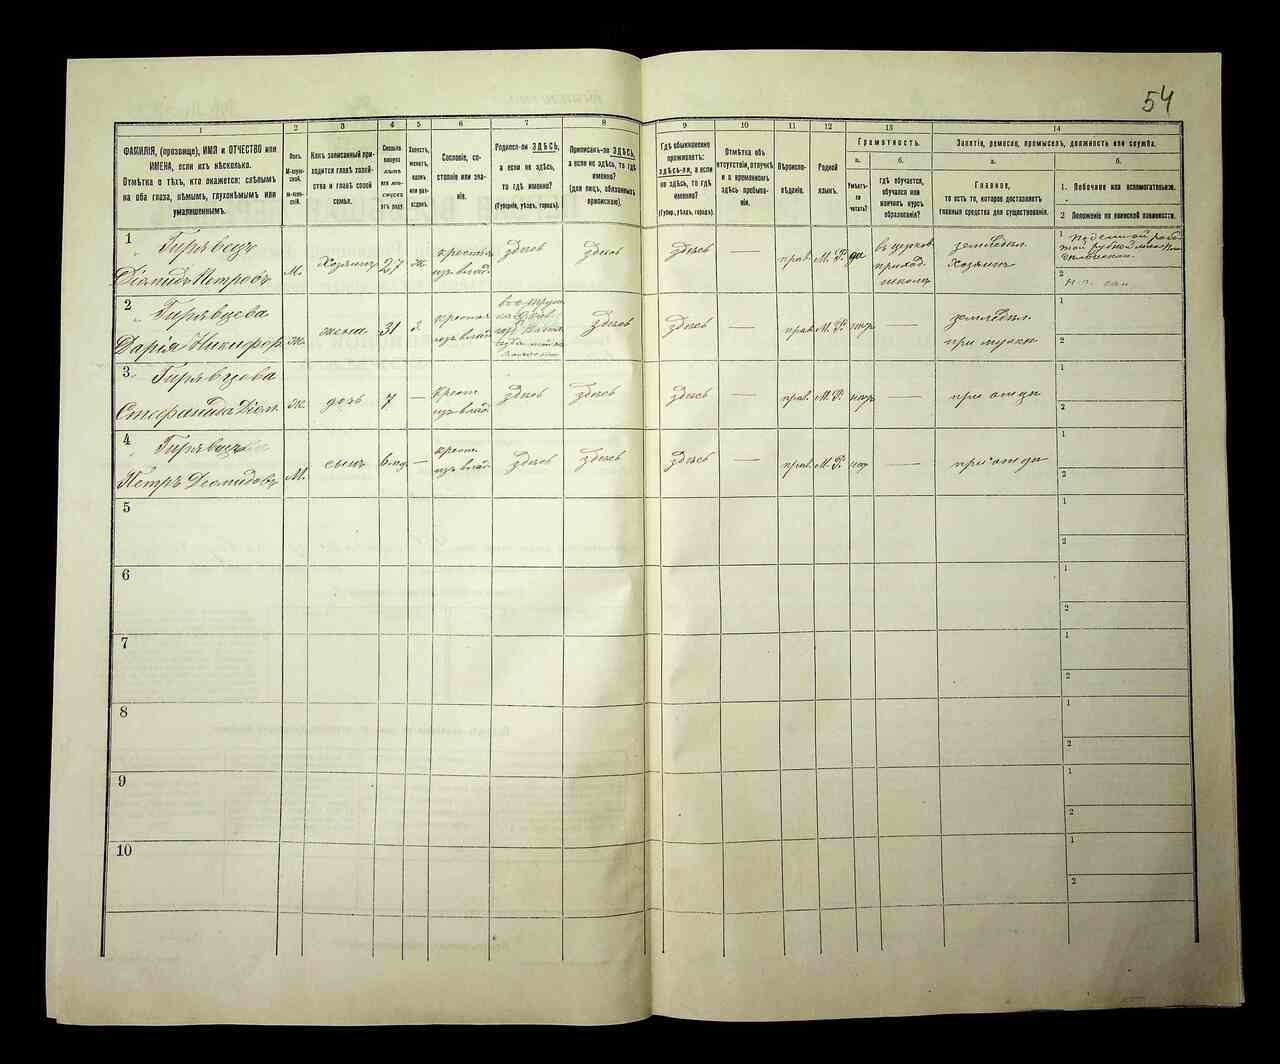 54
1
2
3
4
5
6
7
8
9
10
11
12
13
14
ФАМИЛІЯ, (прозвище), ИМЯ и ОТЧЕСТВО или
ИМЕНА, если ихъ нѣсколько.
Отмѣтка о тѣхъ, кто окажется: слѣпымъ
на оба глаза, нѣмымъ, глухонѣмымъ или
умалишеннымъ.
Полъ.
М-мужской.
Ж-женскій.
Какъ записанный при-
ходится главѣ хозяй-
ства и главѣ своей
семьи.
Сколько
минуло
лѣтъ
или мѣ-
сяцевъ
отъ роду.
Холостъ,
женатъ,
вдовъ
или раз-
веденъ.
Сословіе, со-
стояніе или зва-
ніе.
Родился-ли ЗДѢСЬ,
а если не здѣсь,
то гдѣ именно?
(Губернія, уѣздъ, городъ).
Приписанъ-ли ЗДѢСЬ,
а если не здѣсь, то гдѣ
именно?
(для лицъ, обязанныхъ
припискою).
Гдѣ обыкновенно
проживаетъ:
здѣсь-ли, а если
не здѣсь, то гдѣ
именно?
(Губер., уѣздъ, городъ).
Отмѣтка объ
отсутствіи, отлучкѣ
и о временномъ
здѣсь пребыва-
ніи.
Вѣроиспо-
вѣданіе.
Родной
языкъ.
Грамотность.
а.
Умѣетъ-
ли
читать?
б.
гдѣ обучается,
обучался или
кончилъ курсъ
образованія?
Занятіе, ремесло, промыселъ, должность или служба.
а.
Главное,
то есть то, которое доставляетъ
главныя средства для существованія.
б.
1. Побочное или вспомогательное.
2 Положеніе по воинской повинности.
1 Гирявецъ
Діомидъ Петровъ М. хозяинъ 27 ж. крестьян. изъ влад. здѣсь здѣсь здѣсь — прав. М. Р. да въ церков. приход. школѣ земледѣл. хозяинъ
1
2
2 Гирявцева
Дарія Никифор. Ж. жена 31 З. крестьян. изъ влад. здѣсь здѣсь — прав. М. Р. нѣтъ — земледѣл. при мужѣ
1
2
3 Гирявцова
Стефанида Діом. Ж. дочь 7 — крест. изъ влад. здѣсь здѣсь здѣсь — прав. М. Р. нѣтъ — при отцѣ
1
2
4 Гирявцевъ
Петръ Діомидовъ М. сынъ — крест. изъ влад. здѣсь здѣсь здѣсь — прав. М. Р. нѣтъ — при отцѣ
1
2
5
1
2
6
1
2
7
1
2
8
1
2
9
1
2
10
1
2